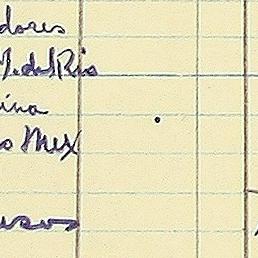 dores
M. del Rio
ina
o Mex